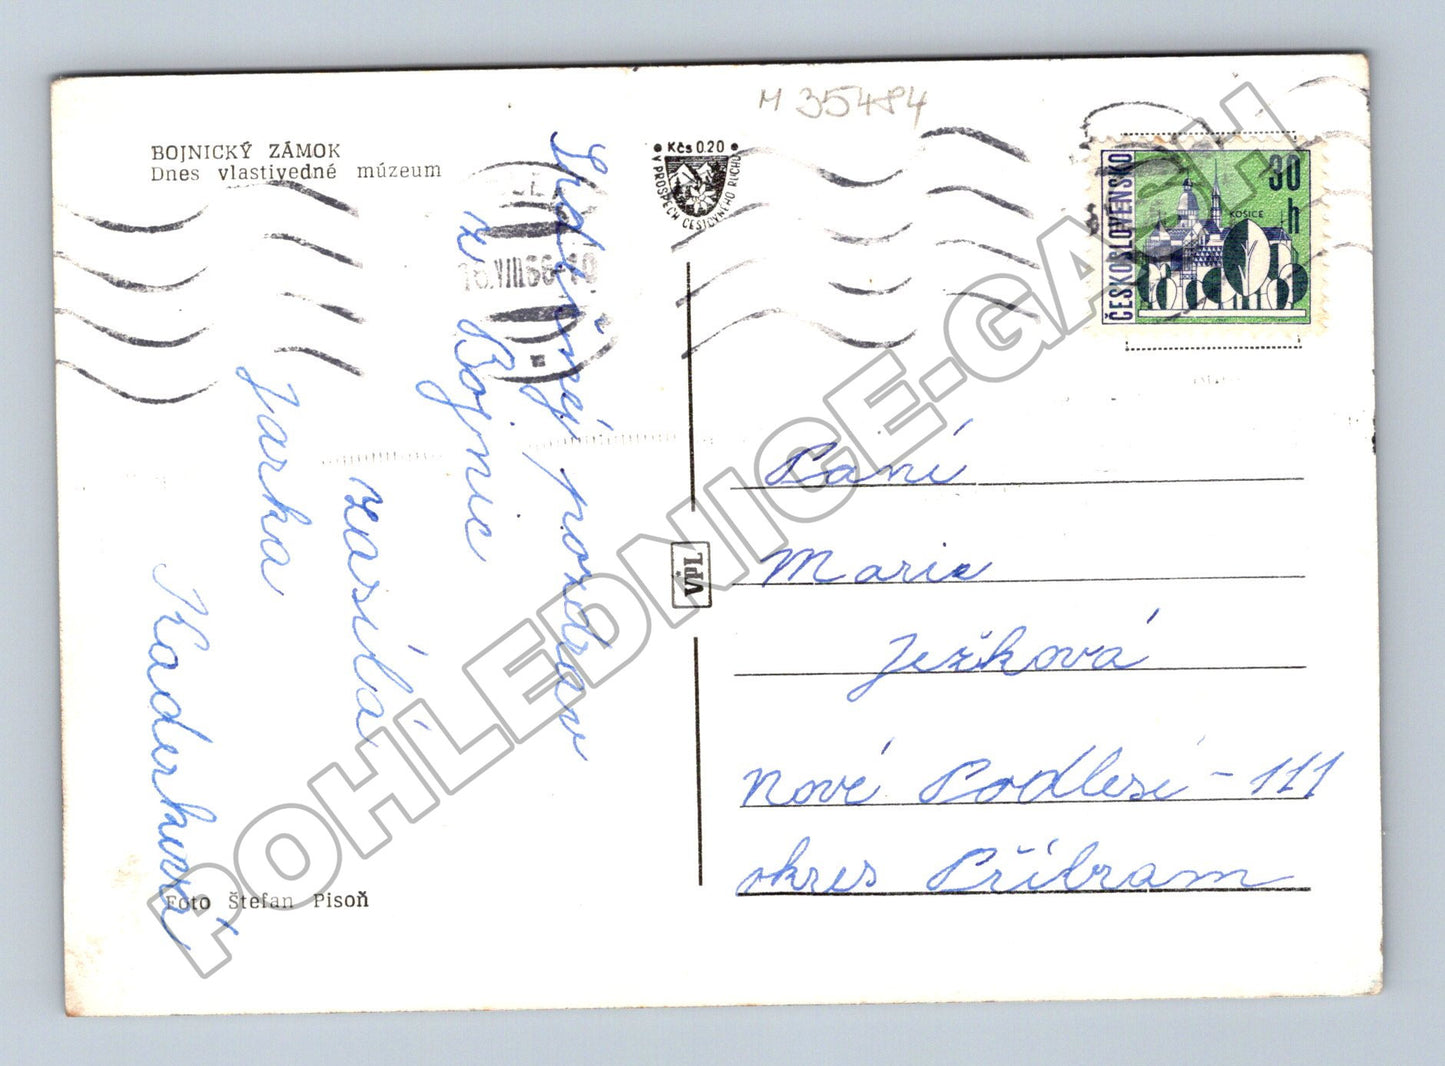 M 35484
BOJNICKÝ ZÁMOK
Dnes vlastivedné múzeum
• Kčs 0.20 •
V PROSPECH CESTOVNÉHO RUCHU
ČESKOSLOVENSKO
30
h
KOŠICE
16.VIII.66-10
Srdečný pozdrav
z Bojnic
zasílá
Jarka
Kaderková
VPL
Paní
Marie
Ježková
Nové Podlesí - 111
okres Příbram
Foto Štefan Pisoň
POHLEDNICE-GACH